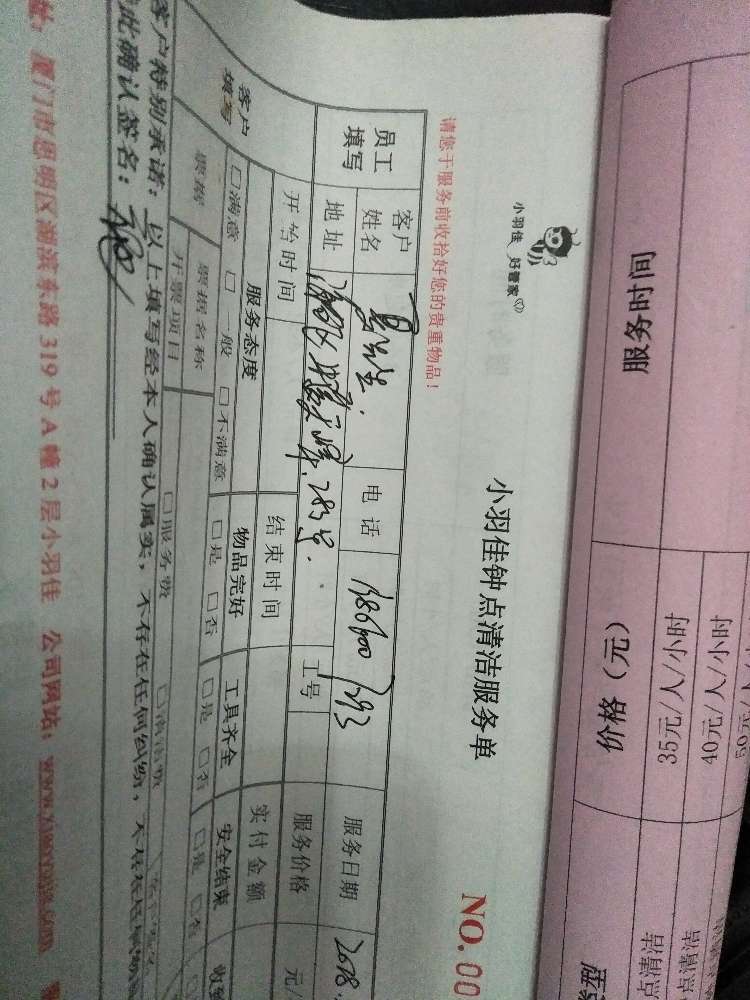 服务时间
价格（元）
35元/人/小时
40元/人/小时
50元/人/小时
点清洁
点清洁
小羽佳 好管家
小羽佳钟点清洁服务单
NO.00
请您于服务前收拾好您的贵重物品！
员工填写
客户姓名
电话
服务日期
2018.
地址
283号.
工号
服务价格
元/
开始时间
结束时间
实付金额
客户填写
服务态度
物品完好
工具齐全
安全结束
□满意 □一般 □不满意
□是 □否
□是 □否
□是 □否
票据
票据名称
开票项目
□服务费
□清洁费
客户特别承诺：以上填写经本人确认属实，不存在任何纠纷，
此确认签名：
址：厦门市思明区湖滨东路 319 号 A 幢 2 层小羽佳 公司网站：